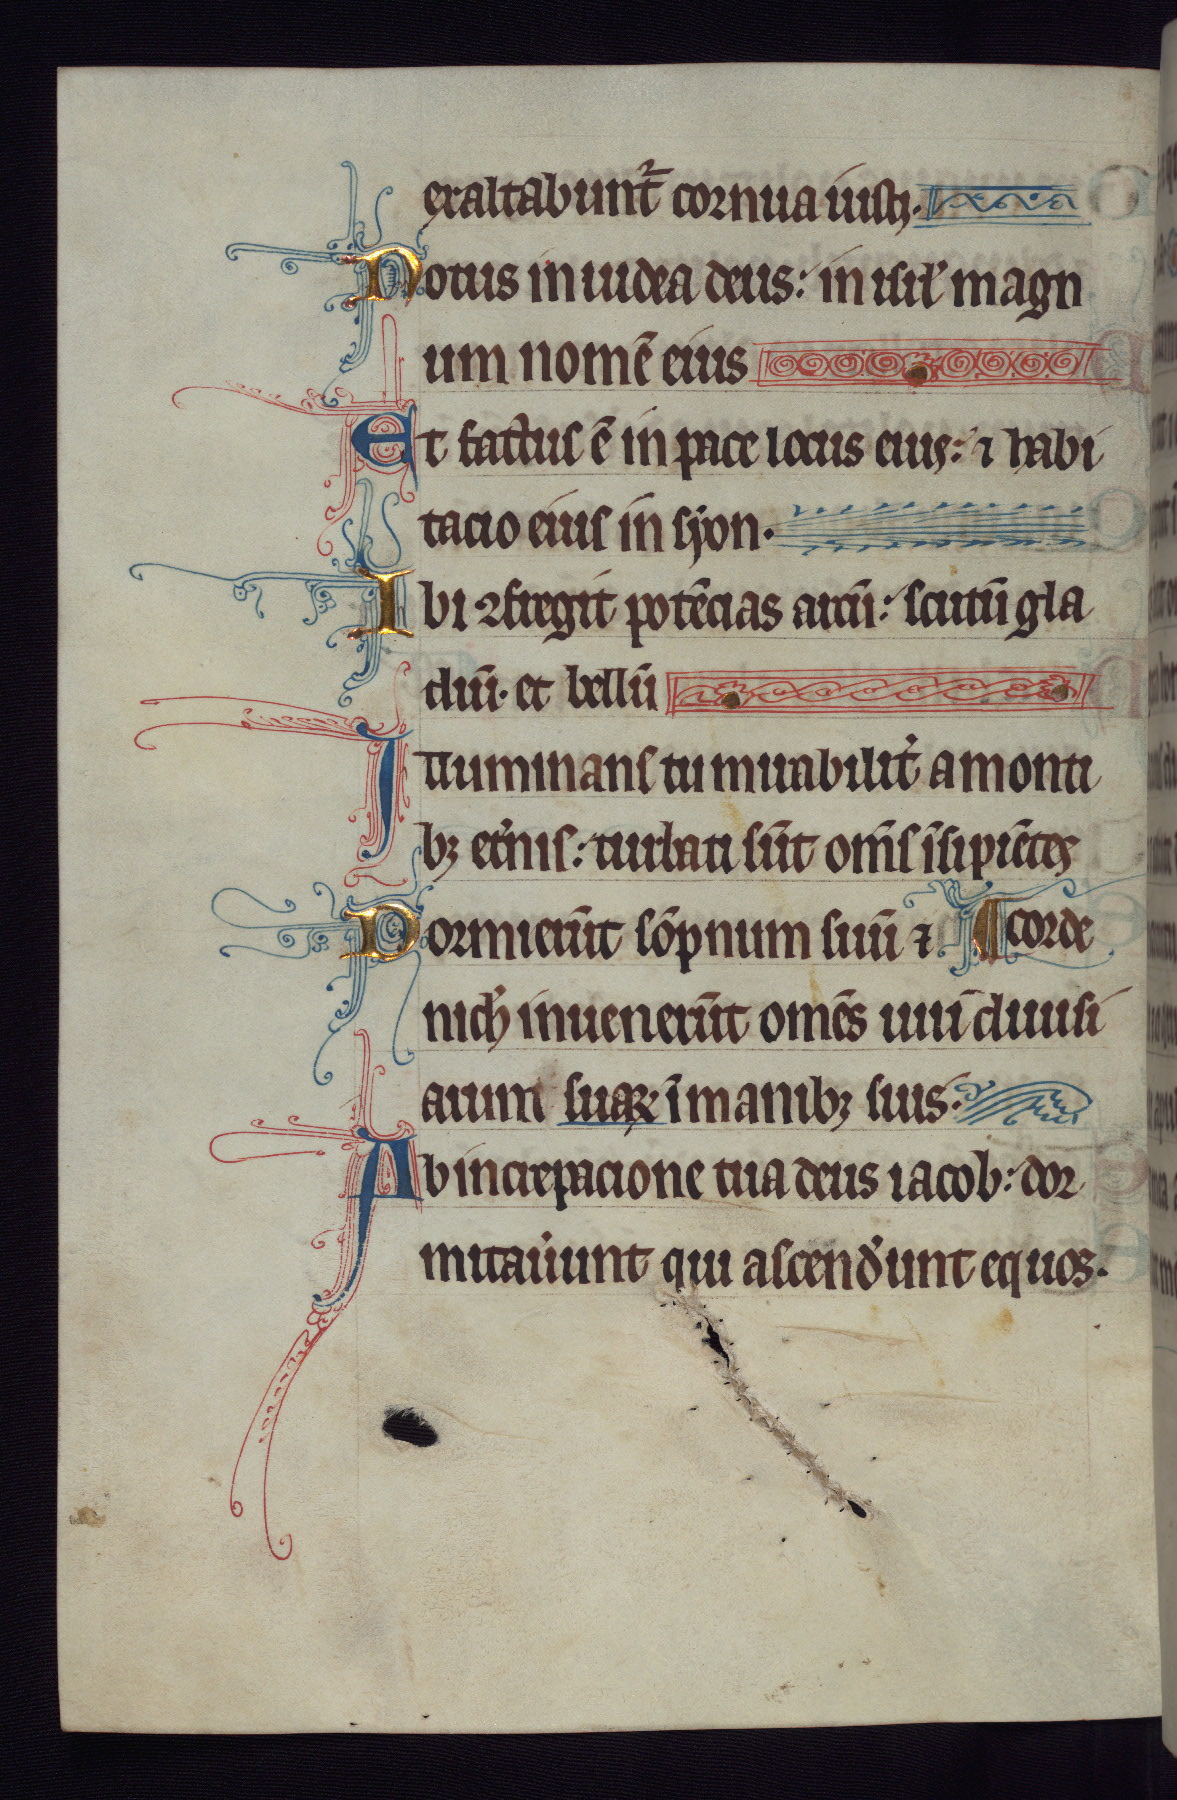 exaltabunt᷑ cornua iusti.
Notus in iudea deus: in isrł magn
um nomē eius
Et factus ē in pace locus eius: ⁊ habi
tacio eius in syon.
Ibi ꝯfregit potēcias arcū: scutū gla
diū. et bellū
Illuminans tu mirabilit᷑ a monti
bꝫ et᷑nis: turbati sūt om̄s īsipiētes
corde
Dormierūt sōpnum suū ⁊
nich̓ inuenerūt omēs uiri diuisi
arum suaꝝ ī manibꝫ suis.
Ab increpacione tua deus iacob: dor
mitau̓unt qui ascend̓unt equos.